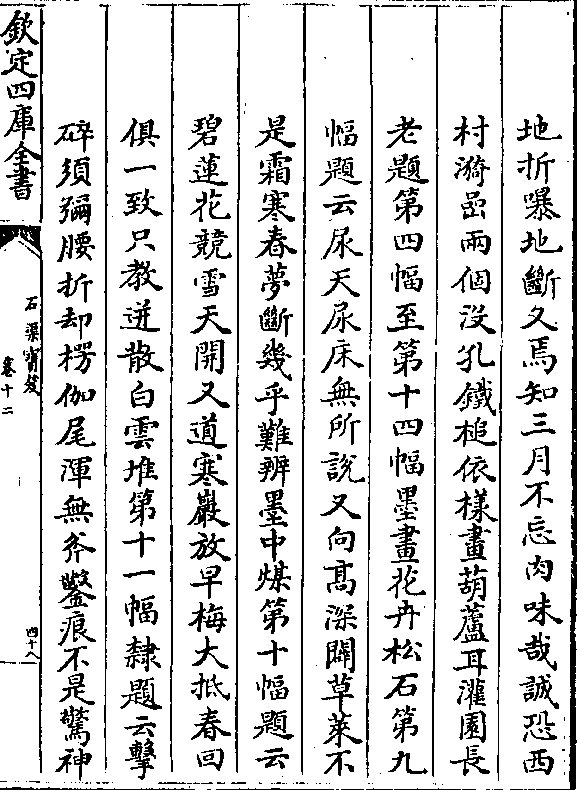 地折曝地斷又焉知三月不忘肉味哉誠恐西
村漪嵒兩個沒孔鐵槌依樣畫葫蘆耳灌園長
老題第四幅至第十四幅墨畫花卉松石第九
幅題云尿天尿床無所說又向髙深闢草萊不
是霜寒春夢斷幾乎難辨墨中煤第十幅題云
碧蓮花競雪天開又道寒巖放早梅大抵春回
俱一致只教迸散白雲堆第十一幅隸題云擊
碎須彌腰折却楞伽尾渾無斧鑿痕不是驚神
欽定四庫全書
石渠寶笈
卷十二
四十八